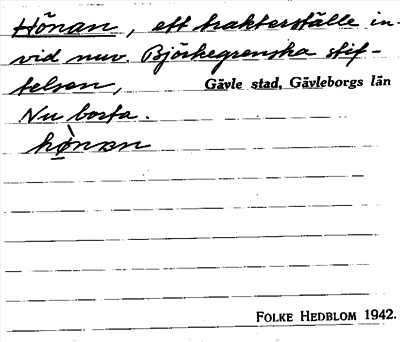 Hönan, ett traktörställe in-
vid nuv. Björkegrenska stif-
telsen,
Gävle stad, Gävleborgs län
Nu borta.
hö̀nan
FOLKE HEDBLOM 1942.